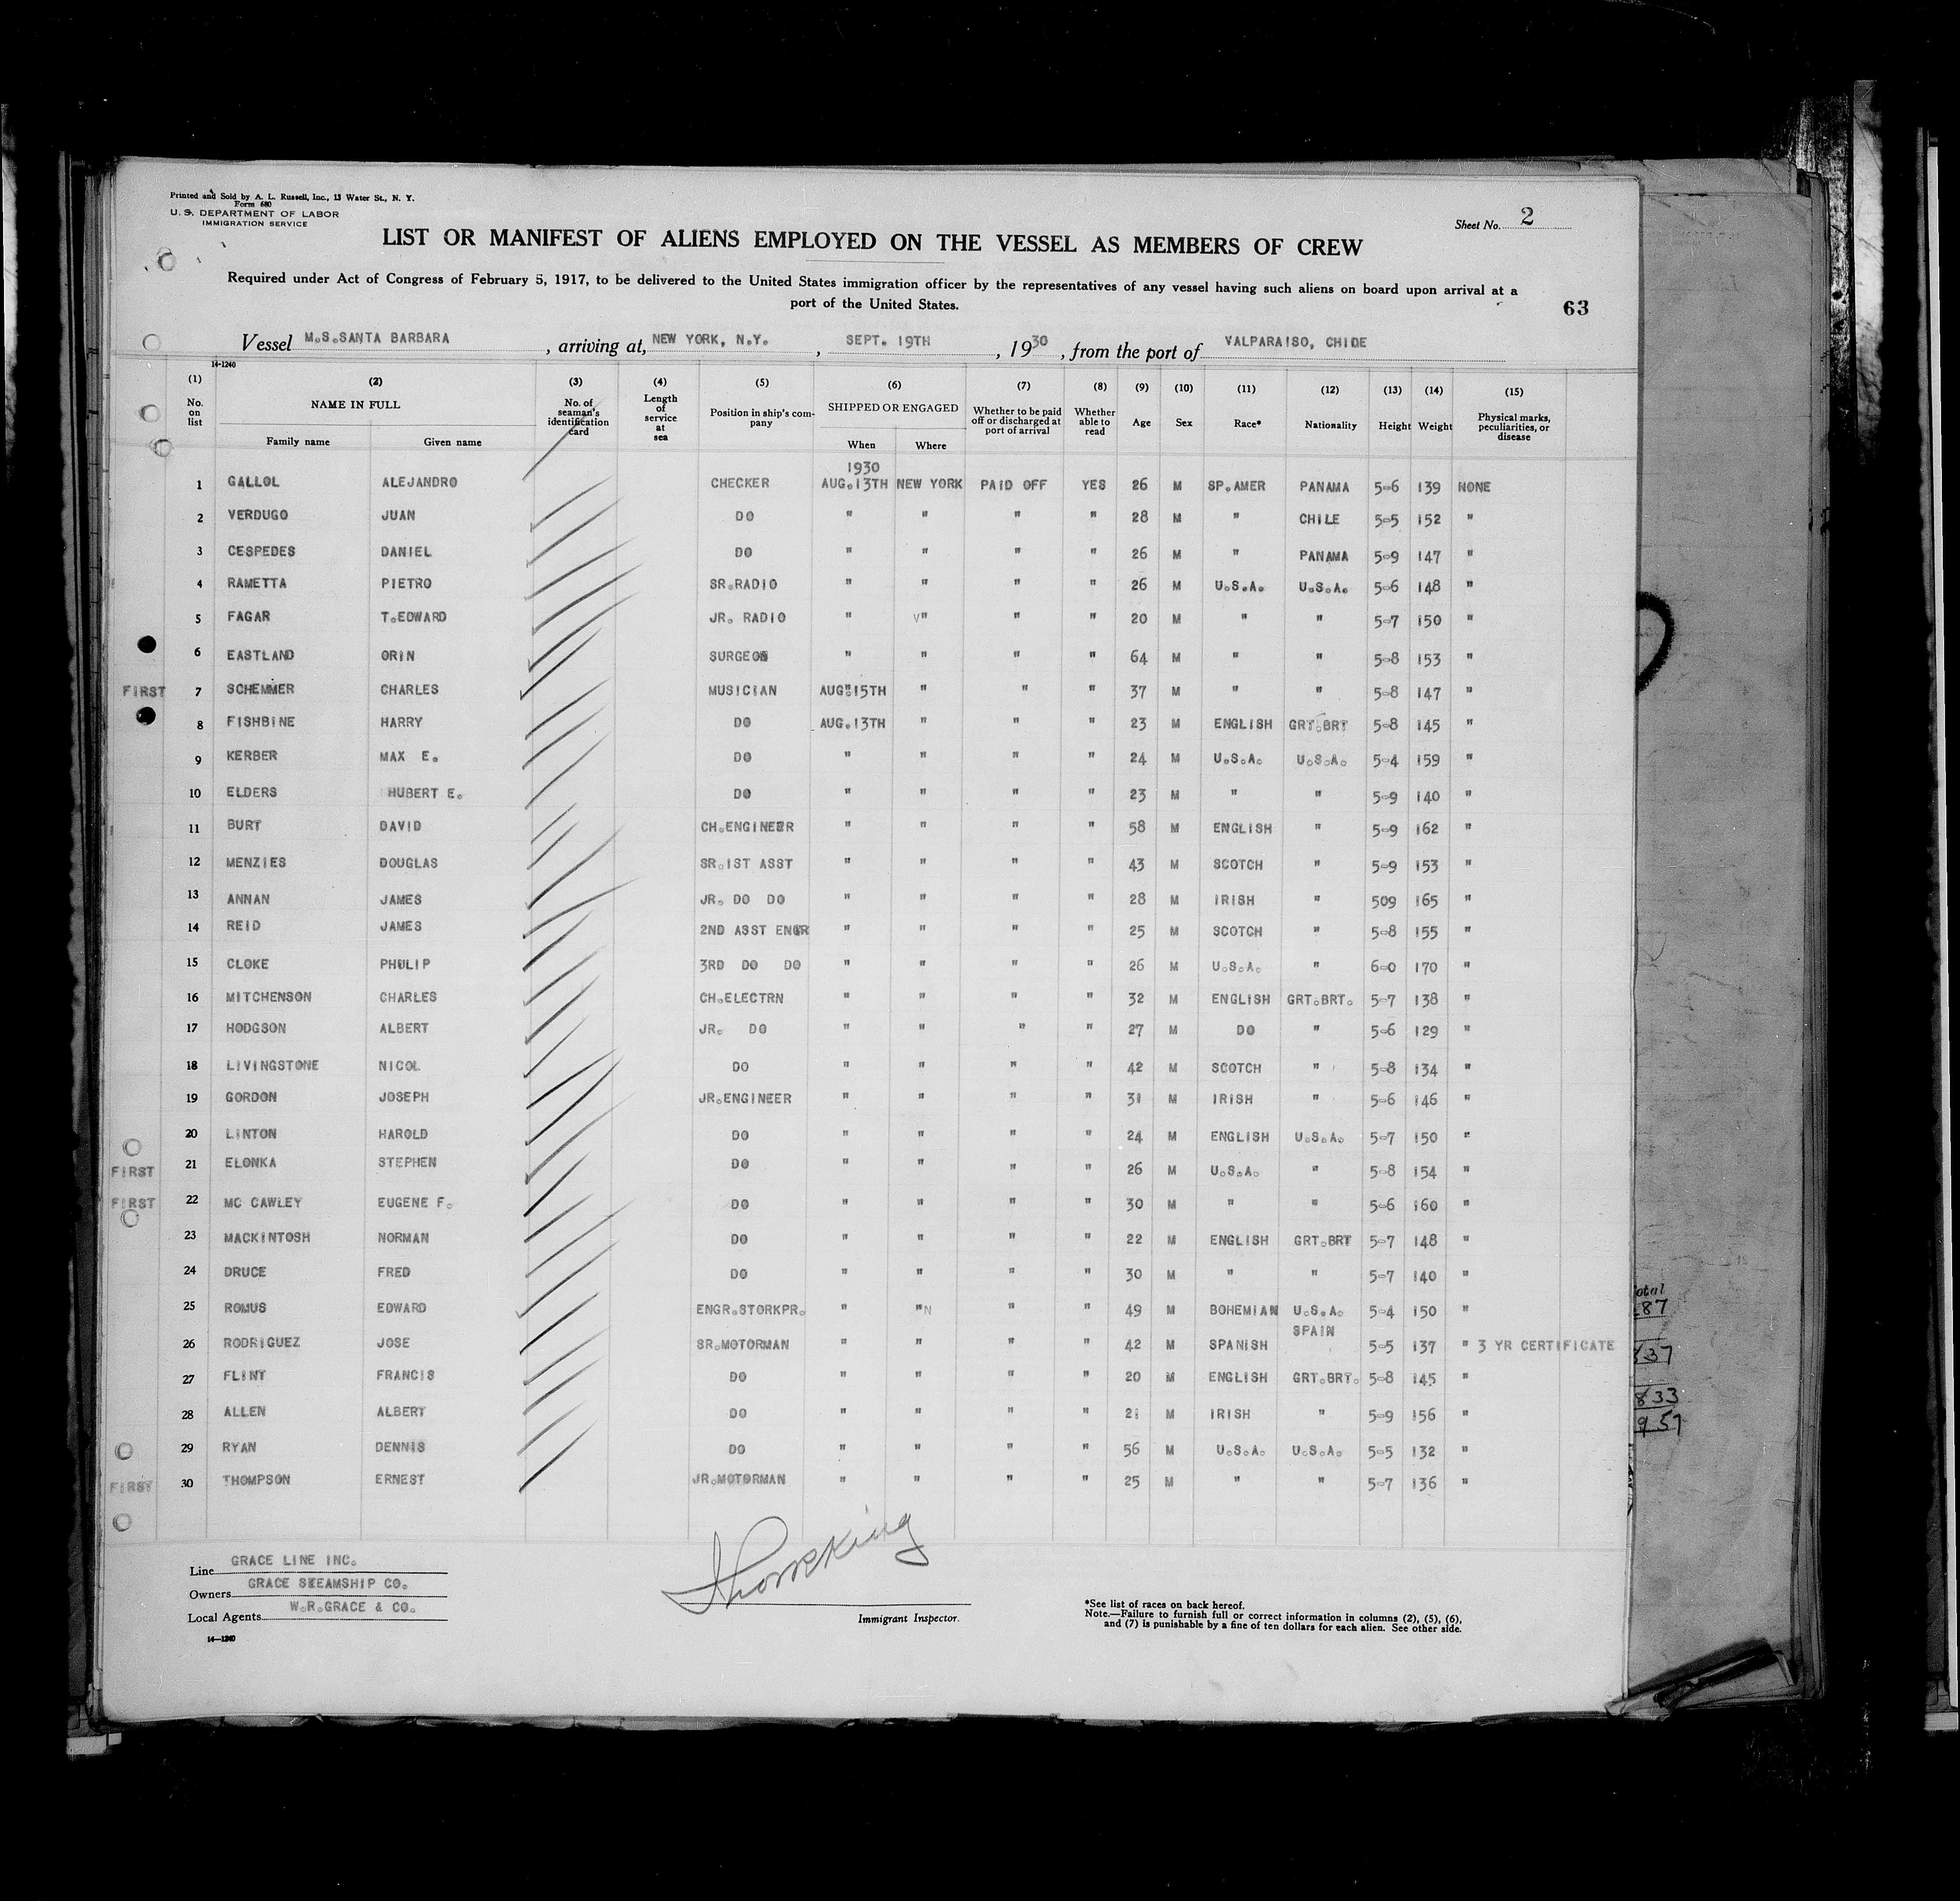 Printed and Sold by A. L. Russell, Inc., 13 Water St., N. Y.
Form 680
U. S. DEPARTMENT OF LABOR
IMMIGRATION SERVICE
Sheet No. 2
LIST OR MANIFEST OF ALIENS EMPLOYED ON THE VESSEL AS MEMBERS OF CREW
Required under Act of Congress of February 5, 1917, to be delivered to the United States immigration officer by the representatives of any vessel having such aliens on board upon arrival at a
port of the United States.
63
Vessel M.S.SANTA BARBARA, arriving at, NEW YORK, N.Y., SEPT. 19TH, 1930, from the port of VALPARAISO, CHIDE
14-1240
(1) (2) (3) (4) (5) (6) (7) (8) (9) (10) (11) (12) (13) (14) (15)
No. on list NAME IN FULL Family name Given name No. of seaman's identification card Length of service at sea Position in ship's company SHIPPED OR ENGAGED When Where Whether to be paid off or discharged at port of arrival Whether able to read Age Sex Race* Nationality Height Weight Physical marks, peculiarities, or disease
1930
1 GALLOL ALEJANDRO CHECKER AUG.13TH NEW YORK PAID OFF YES 26 M SP.AMER PANAMA 5-6 139 NONE
2 VERDUGO JUAN DO " " " " 28 M " CHILE 5-5 152 "
3 CESPEDES DANIEL DO " " " " 26 M " PANAMA 5-9 147 "
4 RAMETTA PIETRO SR.RADIO " " " " 26 M U.S.A. U.S.A. 5-6 148 "
5 FAGAR T.EDWARD JR. RADIO " V" " " 20 M " " 5-7 150 "
6 EASTLAND ORIN SURGEON " " " " 64 M " " 5-8 153 "
FIRST 7 SCHEMMER CHARLES MUSICIAN AUG.15TH " " " 37 M " " 5-8 147 "
8 FISHBINE HARRY DO AUG.13TH " " " 23 M ENGLISH GRT.BRT 5-8 145 "
9 KERBER MAX E. DO " " " " 24 M U.S.A. U.S.A. 5-4 159 "
10 ELDERS HUBERT E. DO " " " " 23 M " " 5-9 140 "
11 BURT DAVID CH.ENGINEER " " " " 58 M ENGLISH " 5-9 162 "
12 MENZIES DOUGLAS SR.IST ASST " " " " 43 M SCOTCH " 5-9 153 "
13 ANNAN JAMES JR. DO DO " " " " 28 M IRISH " 509 165 "
14 REID JAMES 2ND ASST ENGR " " " " 25 M SCOTCH " 5-8 155 "
15 CLOKE PHULIP 3RD DO DO " " " " 26 M U.S.A. " 6-0 170 "
16 MITCHENSON CHARLES CH.ELECTRN " " " " 32 M ENGLISH GRT.BRT. 5-7 138 "
17 HODGSON ALBERT JR. DO " " " " 27 M DO " 5-6 129 "
18 LIVINGSTONE NICOL DO " " " " 42 M SCOTCH " 5-8 134 "
19 GORDON JOSEPH JR.ENGINEER " " " " 31 M IRISH " 5-6 146 "
20 LINTON HAROLD DO " " " " 24 M ENGLISH U.S.A. 5-7 150 "
FIRST 21 ELONKA STEPHEN DO " " " " 26 M U.S.A. " 5-8 154 "
FIRST 22 MC CAWLEY EUGENE F. DO " " " " 30 M " " 5-6 160 "
23 MACKINTOSH NORMAN DO " " " " 22 M ENGLISH GRT.BRT 5-7 148 "
24 DRUCE FRED DO " " " " 30 M " " 5-7 140 "
25 ROMUS EDWARD ENGR.STORKPR. " "N " " 49 M BOHEMIAN U.S.A. 5-4 150 "
26 RODRIGUEZ JOSE SR.MOTORMAN " " " " 42 M SPANISH SPAIN 5-5 137 " 3 YR CERTIFICATE
27 FLINT FRANCIS DO " " " " 20 M ENGLISH GRT.BRT. 5-8 145 "
28 ALLEN ALBERT DO " " " " 21 M IRISH " 5-9 156 "
29 RYAN DENNIS DO " " " " 56 M U.S.A. U.S.A. 5-5 132 "
FIRST 30 THOMPSON ERNEST JR.MOTORMAN " " " " 25 M " " 5-7 136 "
Line GRACE LINE INC.
Owners GRACE SEEAMSHIP CO.
Local Agents W.R.GRACE & CO.
14—1240
Immigrant Inspector.
*See list of races on back hereof.
Note.—Failure to furnish full or correct information in columns (2), (5), (6),
and (7) is punishable by a fine of ten dollars for each alien. See other side.
87
833